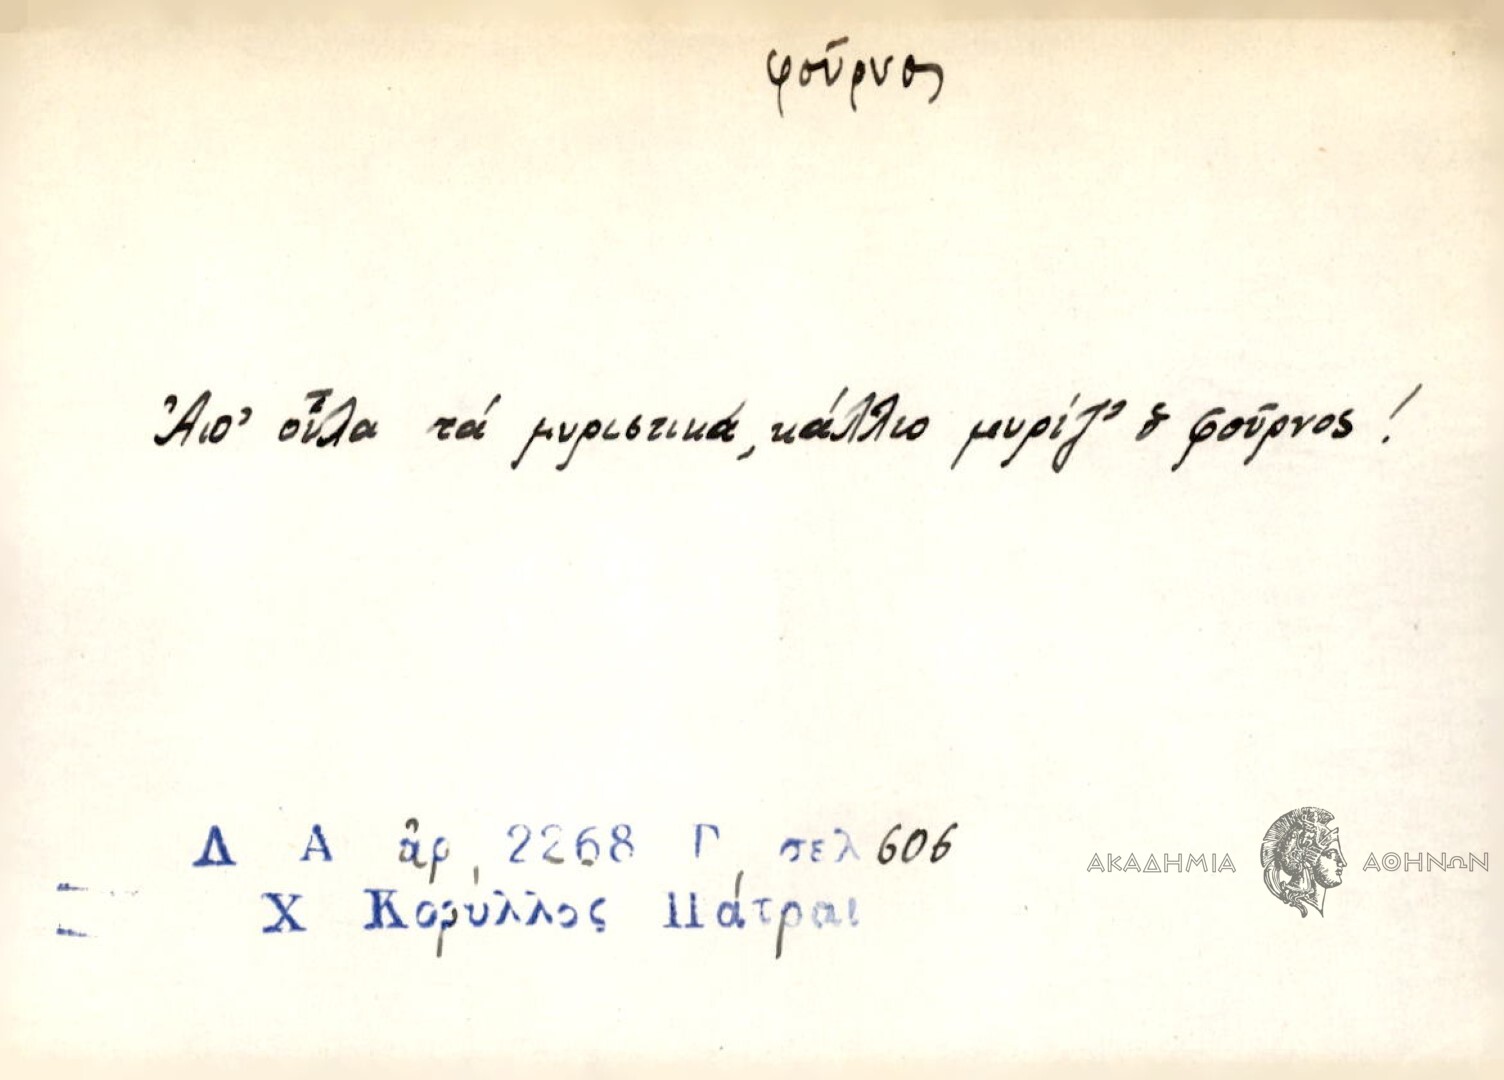 φοῦρνος
Ἀπ' οὗλα τά μυριστικά, κάλλιο μυρίζ' ὁ φοῦρνος!
Δ Α ἀρ 2268 Γ σελ 606
ΑΚΑΔΗΜΙΑ ΑΘΗΝΩΝ
Χ Κορύλλος Πάτραι